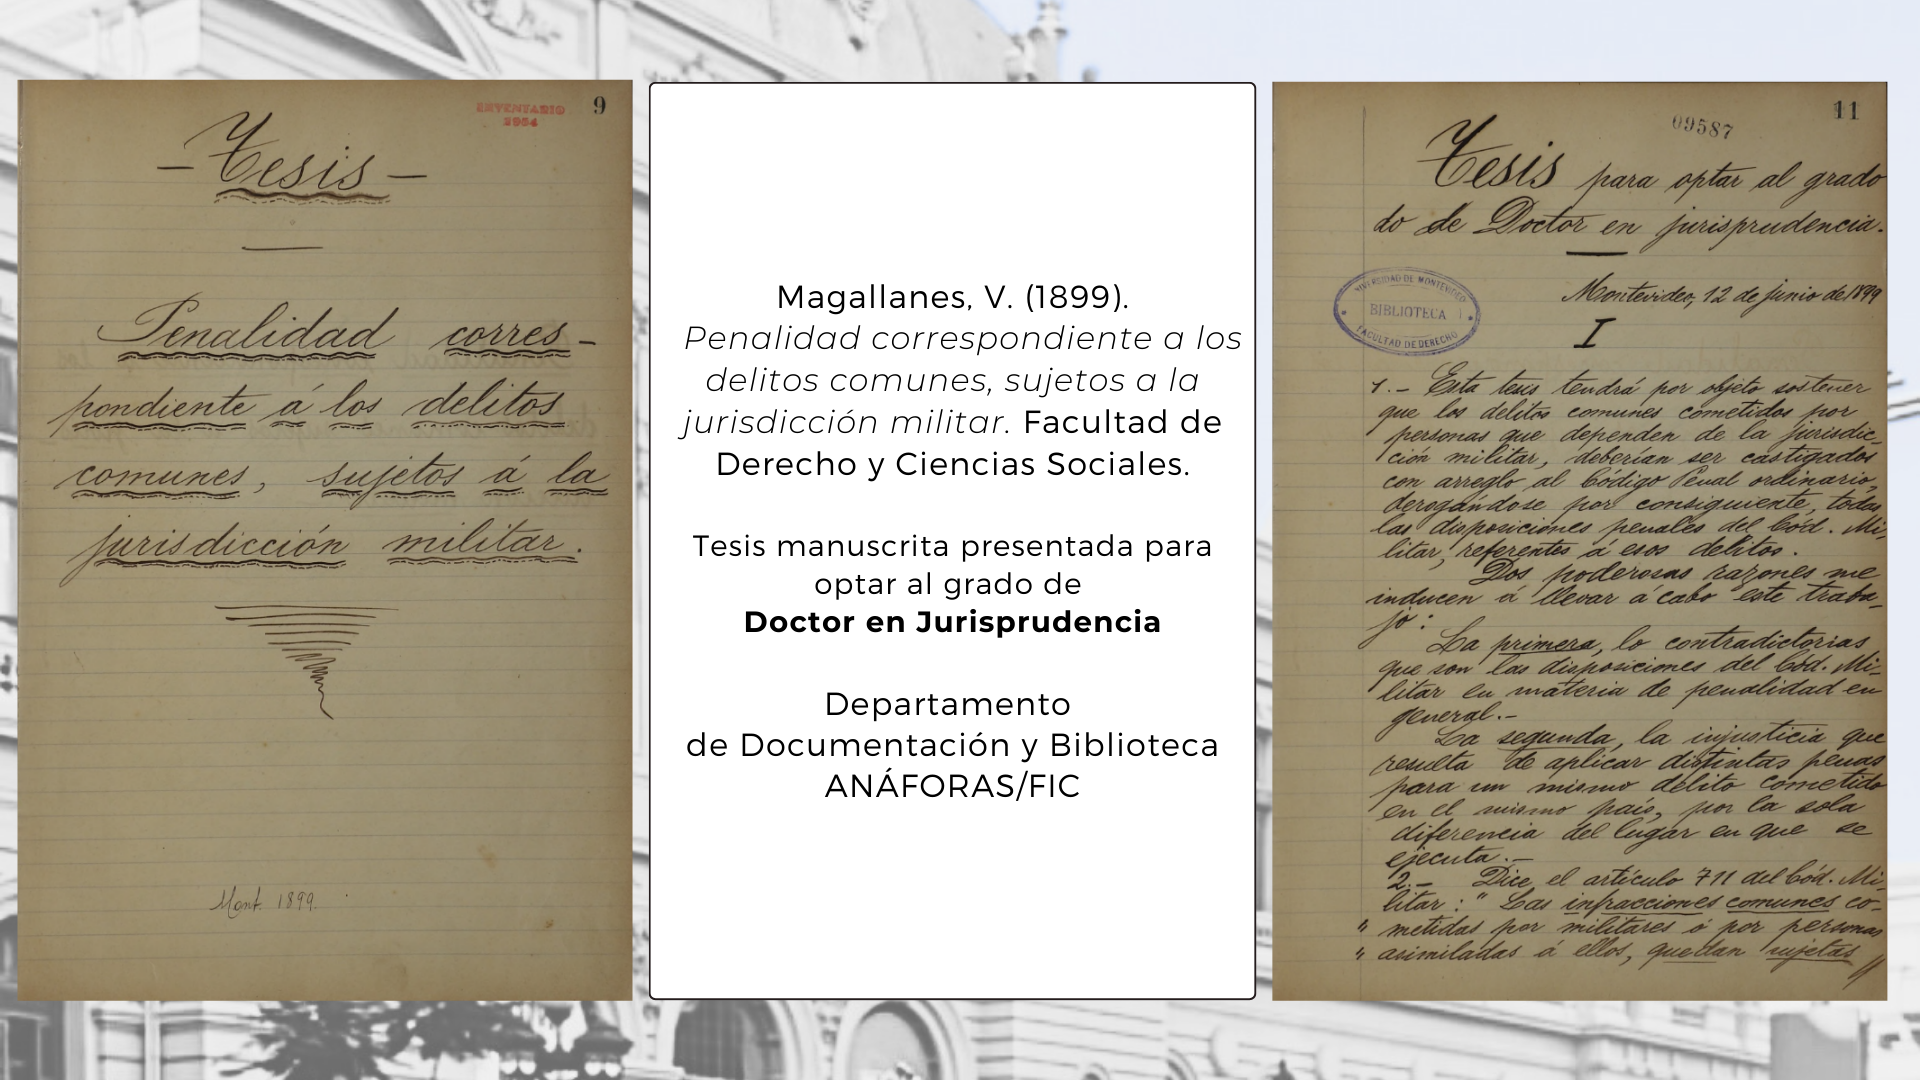 INVENTARIO
2954
9
– Tesis –
Penalidad corres-
pondiente á los delitos
comunes, sujetos á la
jurisdicción militar.
Mont. 1899.
Magallanes, V. (1899).
Penalidad correspondiente a los
delitos comunes, sujetos a la
jurisdicción militar. Facultad de
Derecho y Ciencias Sociales.
Tesis manuscrita presentada para
optar al grado de
Doctor en Jurisprudencia
Departamento
de Documentación y Biblioteca
ANÁFORAS/FIC
11
09587
Tesis para optar al grado
do de Doctor en jurisprudencia.
Montevideo, 12 de junio de 1899
UNIVERSIDAD DE MONTEVIDEO
BIBLIOTECA
FACULTAD DE DERECHO
I
1.– Esta tesis tendrá por objeto sostener
que los delitos comunes cometidos por
personas que dependen de la jurisdic-
ción militar, deberían ser castigados
con arreglo al Código Penal ordinario,
derogándose por consiguiente, todas
las disposiciones penales del Cód. Mi-
litar, referentes á esos delitos.
Dos poderosas razones me
inducen á llevar á cabo este traba-
jo:
La primera, lo contradictorias
que son las disposiciones del Cód. Mi-
litar en materia de penalidad en
general.–
La segunda, la injusticia que
resulta de aplicar distintas penas
para un mismo delito cometido
en el mismo país, por la sola
diferencia del lugar en que se
ejecuta.–
2.– Dice el artículo 711 del Cód. Mi-
litar: " Las infracciones comunes co-
" metidas por militares ó por personas
" asimiladas á ellos, quedan sujetas //